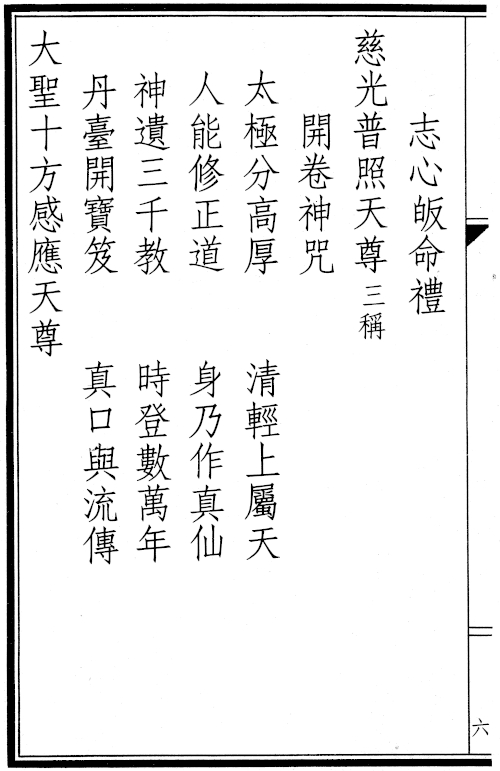 志心皈命禮
慈光普照天尊三稱
開卷神咒
太極分高厚 清輕上屬天
人能修正道 身乃作真仙
神遺三千教 時登數萬年
丹臺開寶笈 真口與流傳
大聖十方感應天尊
六